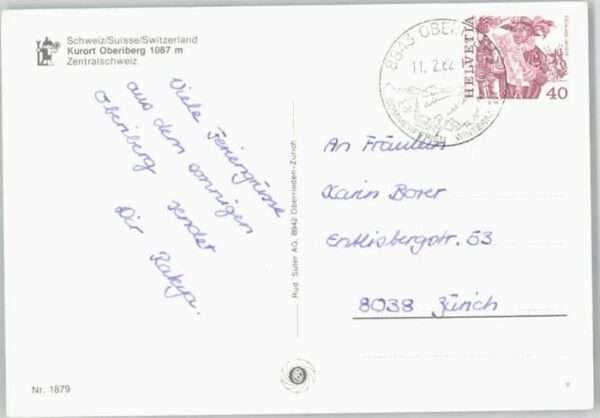 Schweiz/Suisse/Switzerland
Kurort Oberiberg 1087 m
Zentralschweiz
Viele Feriengrüsse
aus dem sonnigen
Oberiberg sendet
Dir
8843
11. 2. 82
HELVETIA
40
An Fräulein
Karin Borer
Entlisbergstr. 53
8038 Zürich
Rud. Suter AG, 8942 Oberrieden-Zürich
Nr. 1879